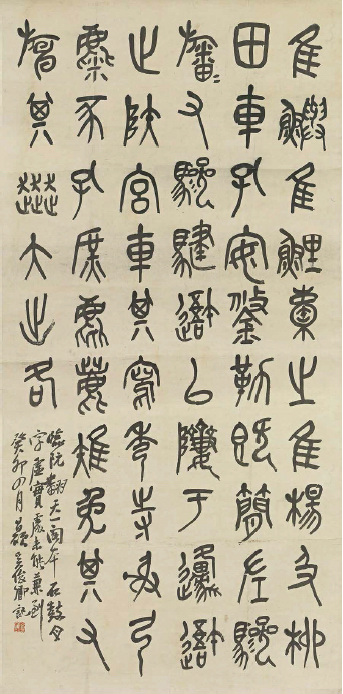 隹鱮隹鯉橐之隹楊及柳
田車孔安鋚勒馮簡左驂
旛=右驂騝䢸㠯隮于邍䢸
止陕宮車其寫秀寺射
麋豕孔庶麀鹿雉兔其又
旃其大出各
臨阮翻天一閣本石鼓全
字虛實處未能兼到
癸卯四月吳俊卿記